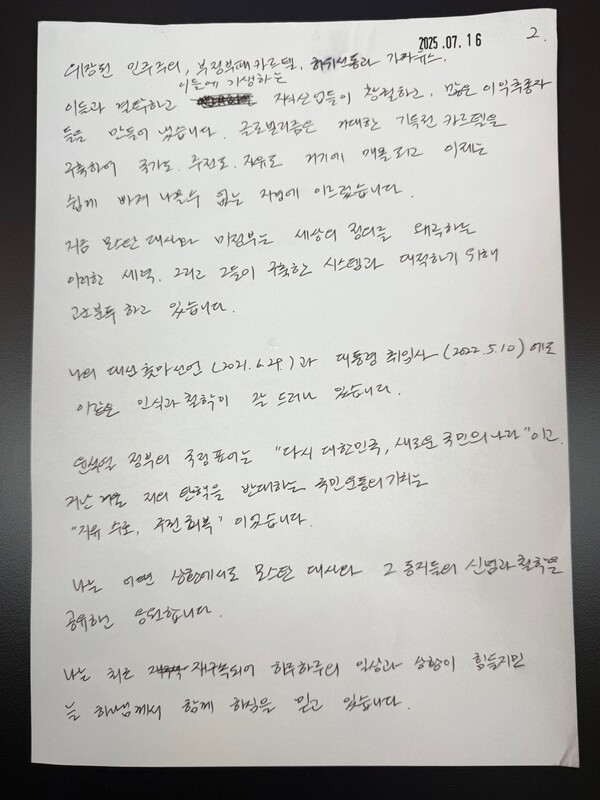 2025.07.16
2.
위장된 민주주의, 부정부패 카르텔, 허위선동과 가짜뉴스.
이들에 기생하는
이들과 결탁하고 지식산업들이 창궐하고, 많은 이익추종자
들을 만들어 냈습니다. 글로벌리즘은 거대한 기득권 카르텔을
구축하여 국가도, 주권도, 자유도 거기에 매몰되고 이제는
쉽게 빠져 나올수 없는 지경에 이르렀습니다.
지금 모스탄 대사와 미정부는 세상의 정의를 왜곡하는
이러한 세력, 그리고 그들이 구축한 시스템과 대적하기 위해
고군분투 하고 있습니다.
나의 대선 출마선언 (2021.6.29)과 대통령 취임사 (2022.5.10)에도
이같은 인식과 철학이 잘 드러나 있습니다.
윤석열 정부의 국정표어는 "다시 대한민국, 새로운 국민의 나라"이고,
지난 겨울 저의 탄핵을 반대하는 국민운동의 기치는
"자유 수호, 주권 회복" 이었습니다.
나는 어떤 상황에서도 모스탄 대사와 그 동지들의 신념과 철학을
공유하고 응원합니다.
나는 최근 재구속되어 하루하루의 일상과 상황이 힘들지만
늘 하나님께서 함께 하심을 믿고 있습니다.